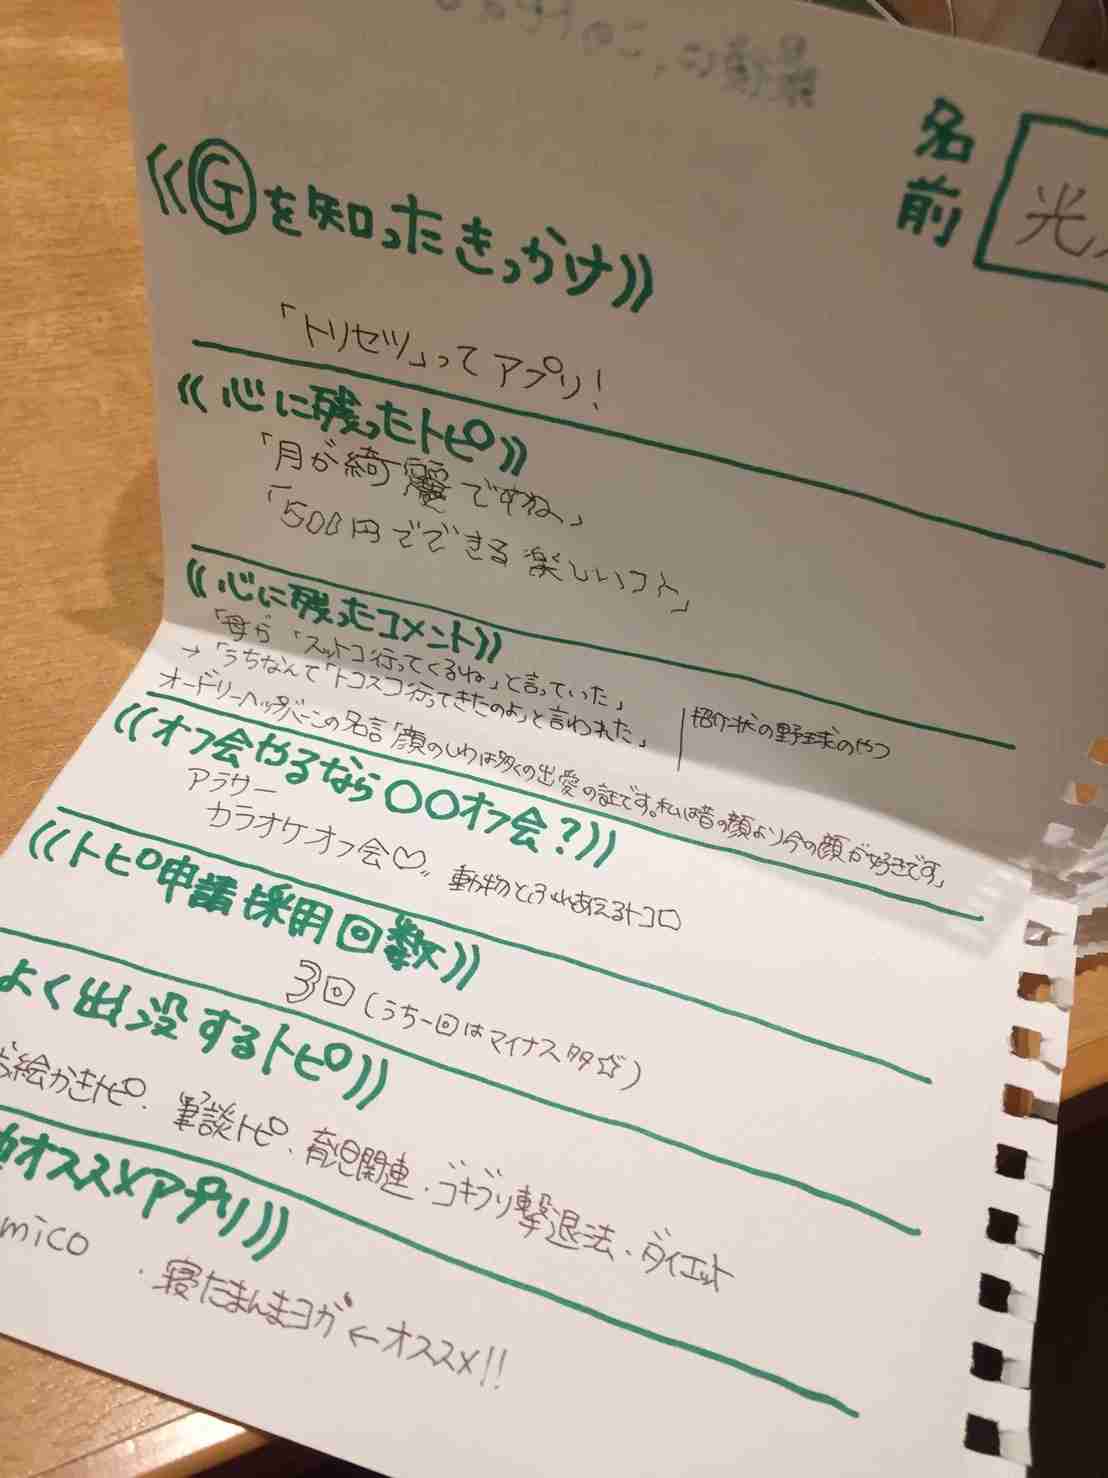 名前
光
《Gを知ったきっかけ》
「トリセツ」ってアプリ!
《心に残ったトピ》
「月が綺麗ですね」
「500円でできる楽しいコト」
《心に残ったコメント》
「母が「スットコ行ってくるね」と言っていた」
→「うちなんて「トコスコ行ってきたのよ」と言われた」
紹介状の野球のやつ
オードリーヘップバーンの名言「顔のしわは多くの出愛の証です。私は昔の顔より今の顔が好きです」
《オフ会やるなら〇〇オフ会?》
アラサー
カラオケオフ会♡ 動物とふれあえるトコロ
《トピ申請採用回数》
3回(うち一回はマイナス多☆)
よく出没するトピ》
絵かきトピ、筆談トピ、育児関連、ゴキブリ撃退法、ダイエット
オススメアプリ》
mico ・寝たまんまヨガ ←オススメ!!